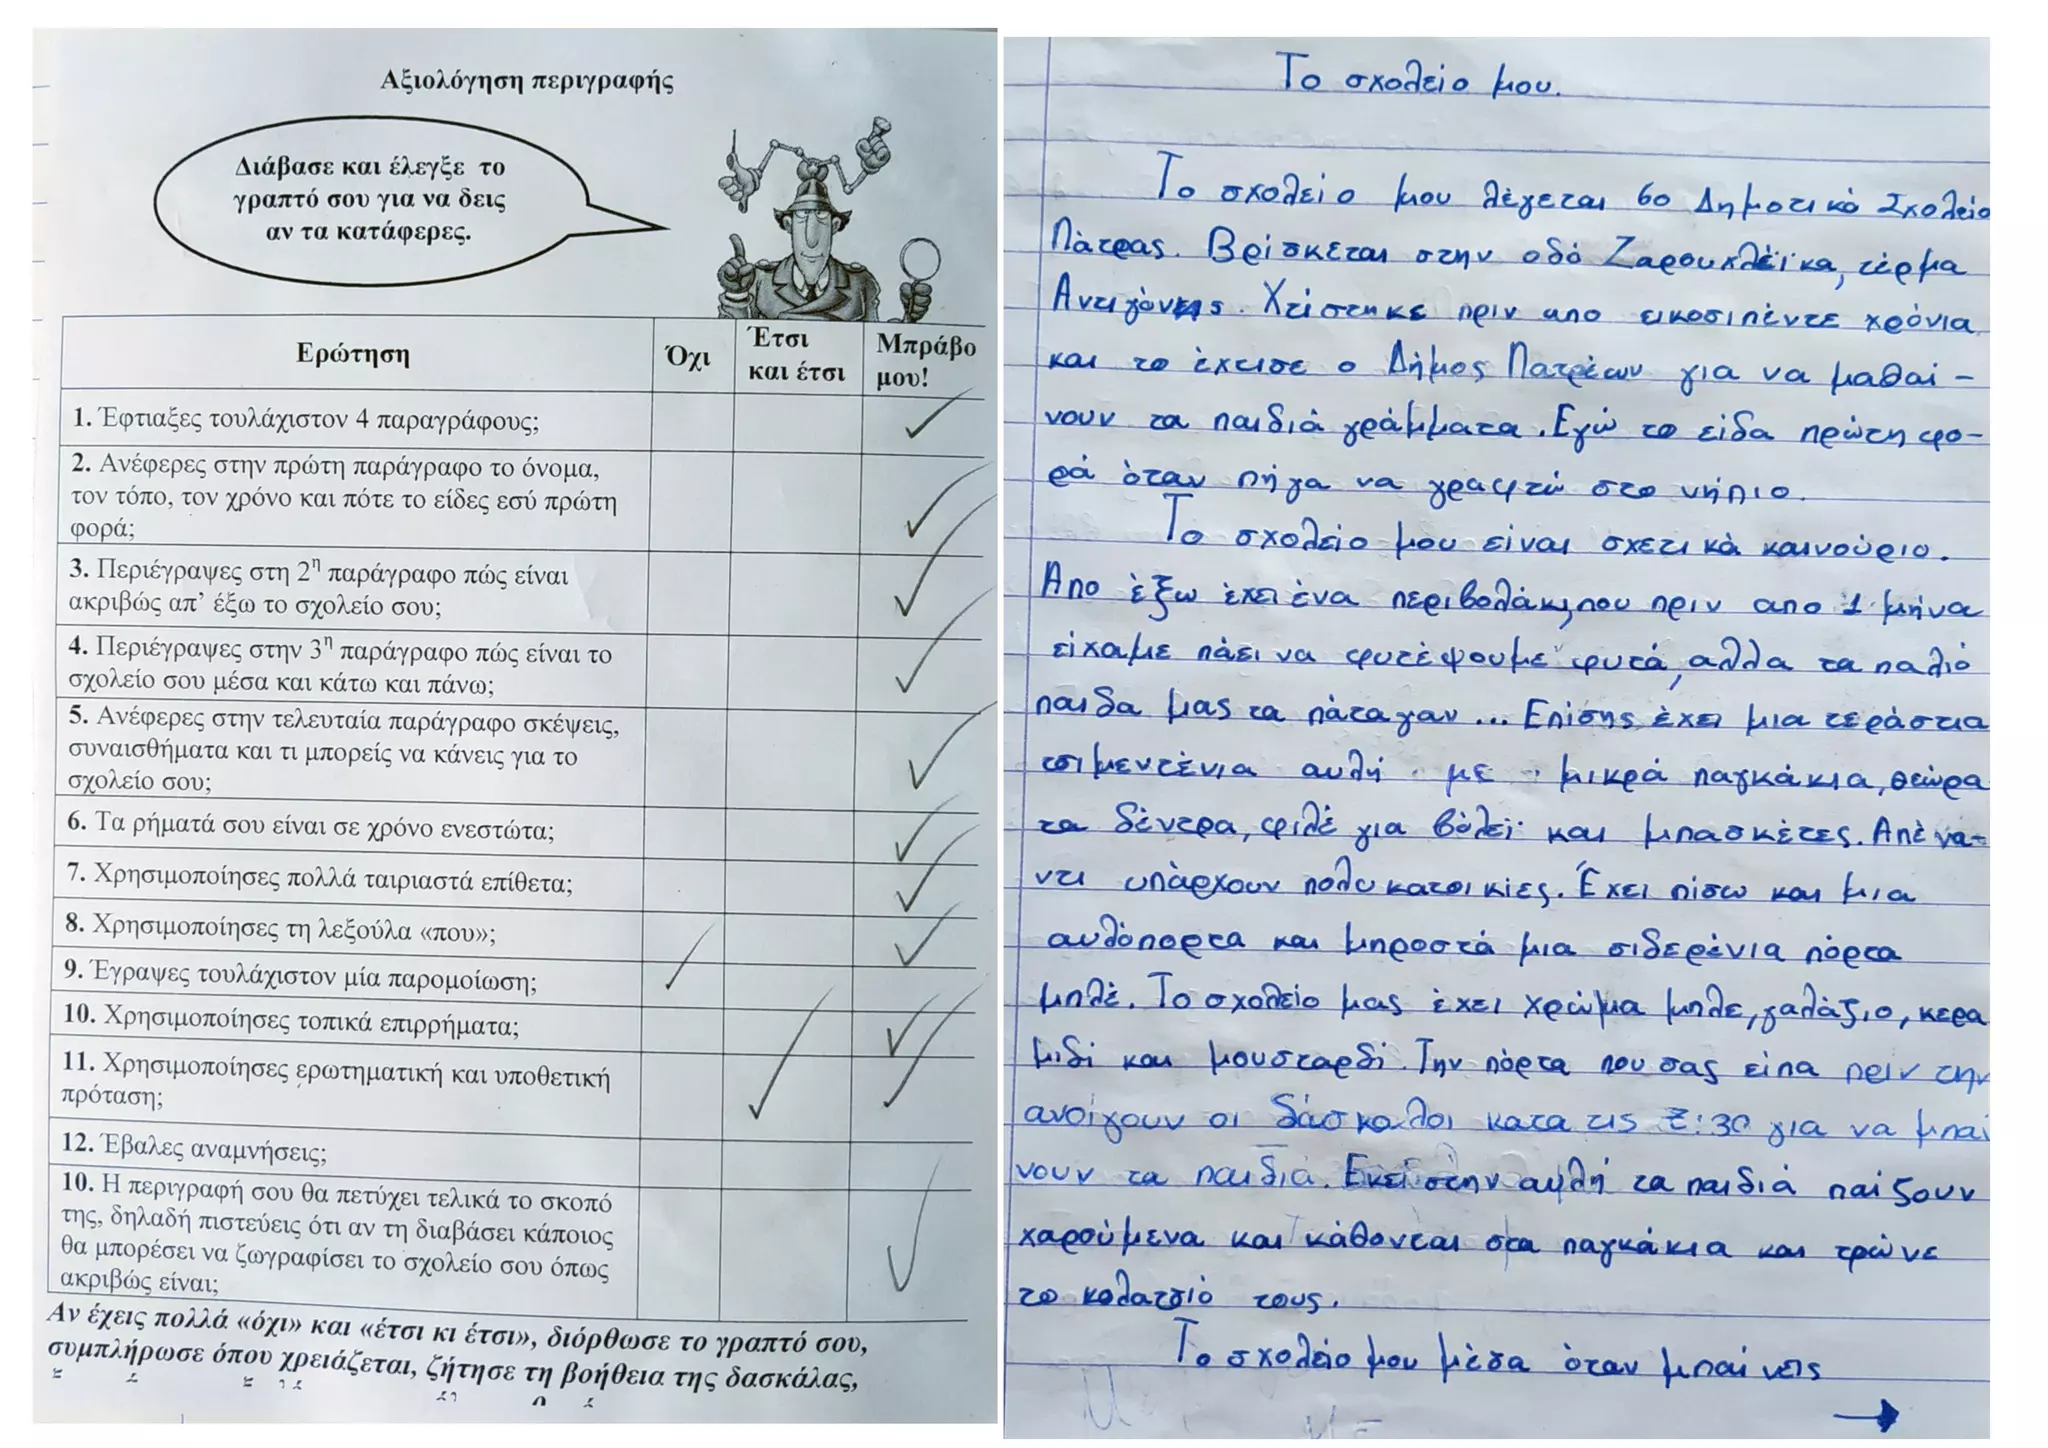 Αξιολόγηση περιγραφής
Διάβασε και έλεγξε το
γραπτό σου για να δεις
αν τα κατάφερες.
Ερώτηση
Όχι
Έτσι
και έτσι
Μπράβο
μου!
1. Έφτιαξες τουλάχιστον 4 παραγράφους;
2. Ανέφερες στην πρώτη παράγραφο το όνομα,
τον τόπο, τον χρόνο και πότε το είδες εσύ πρώτη
φορά;
3. Περιέγραψες στη 2η παράγραφο πώς είναι
ακριβώς απ’ έξω το σχολείο σου;
4. Περιέγραψες στην 3η παράγραφο πώς είναι το
σχολείο σου μέσα και κάτω και πάνω;
5. Ανέφερες στην τελευταία παράγραφο σκέψεις,
συναισθήματα και τι μπορείς να κάνεις για το
σχολείο σου;
6. Τα ρήματά σου είναι σε χρόνο ενεστώτα;
7. Χρησιμοποίησες πολλά ταιριαστά επίθετα;
8. Χρησιμοποίησες τη λεξούλα «που»;
9. Έγραψες τουλάχιστον μία παρομοίωση;
10. Χρησιμοποίησες τοπικά επιρρήματα;
11. Χρησιμοποίησες ερωτηματική και υποθετική
πρόταση;
12. Έβαλες αναμνήσεις;
10. Η περιγραφή σου θα πετύχει τελικά το σκοπό
της, δηλαδή πιστεύεις ότι αν τη διαβάσει κάποιος
θα μπορέσει να ζωγραφίσει το σχολείο σου όπως
ακριβώς είναι;
Αν έχεις πολλά «όχι» και «έτσι κι έτσι», διόρθωσε το γραπτό σου,
συμπλήρωσε όπου χρειάζεται, ζήτησε τη βοήθεια της δασκάλας,
Το σχολείο μου.
Το σχολείο μου λέγεται 6ο Δημοτικό Σχολείο
Πάτρας. Βρίσκεται στην οδό Ζαρουχλέϊκα, τέρμα
Αντιγόνης. Χτίστηκε πριν απο εικοσιπέντε χρόνια
και το έχτισε ο Δήμος Πατρέων για να μαθαί-
νουν τα παιδιά γράμματα. Εγώ το είδα πρώτη φο-
ρά όταν πήγα να γραφτώ στο νήπιο.
Το σχολείο μου είναι σχετικά καινούριο.
Απο έξω έχει ένα περιβολάκι, που πριν απο 1 μήνα
είχαμε πάει να φυτέψουμε φυτά, αλλα τα παλιό
παιδα μας τα πάταγαν... Επίσης έχει μια τεράστια
τσιμεντένια αυλή με μικρά παγκάκια, θεώρα
τα δέντρα, φιλέ για βόλεϊ και μπασκέτες. Απέ να-
ντι υπάρχουν πολυκατοικίες. Έχει πίσω και μια
αυλόπορτα και μπροστά μια σιδερένια πόρτα
μπλέ. Το σχολείο μας έχει χρώμα μπλε, γαλάζιο, κερα
μιδί και μουσταρδί. Την πόρτα που σας είπα πριν την
ανοίγουν οι δάσκαλοι κατα τις 7:30 για να μπαί
νουν τα παιδιά. Εκεί στην αυλή τα παιδιά παίζουν
χαρούμενα και κάθονται στα παγκάκια και τρώνε
το κολατσιό τους.
Το σχολείο μου μέσα όταν μπαίνεις